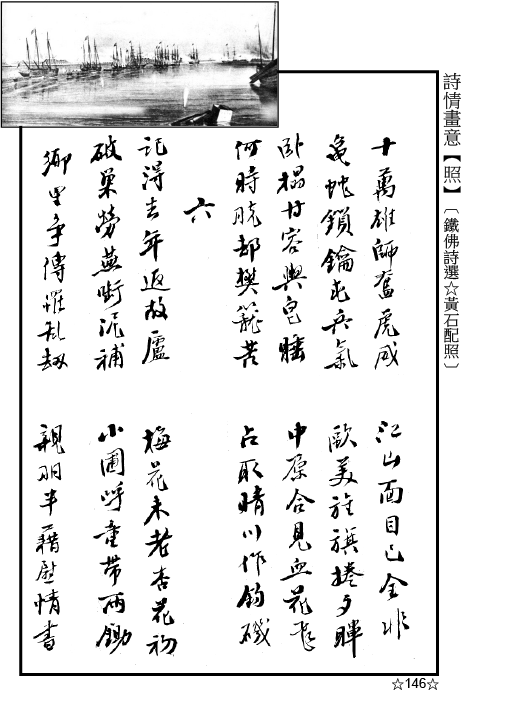 詩情畫意【照】〔鐵佛詩選☆黃石配照〕
十萬雄師奮虎威 江山面目已全非
龜蛇鎖鑰屯兵氣 歐美旌旗捲夕暉
臥榻容輿皂睡 中原合見血花飛
何時脫却樊籠苦 占取晴川作釣磯
六
記得去年返故廬 梅花未老杏花初
破巢勞燕啣泥補 小圃呼童帶雨鋤
鄉里爭傳罹亂劫 親朋半藉慰情書
☆146☆